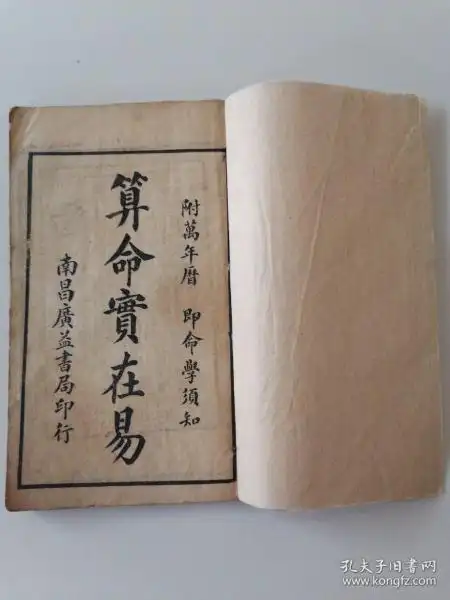 附萬年曆 即命學須知
算命實在易
南昌廣益書局印行
孔夫子旧书网
www.kongfz.com